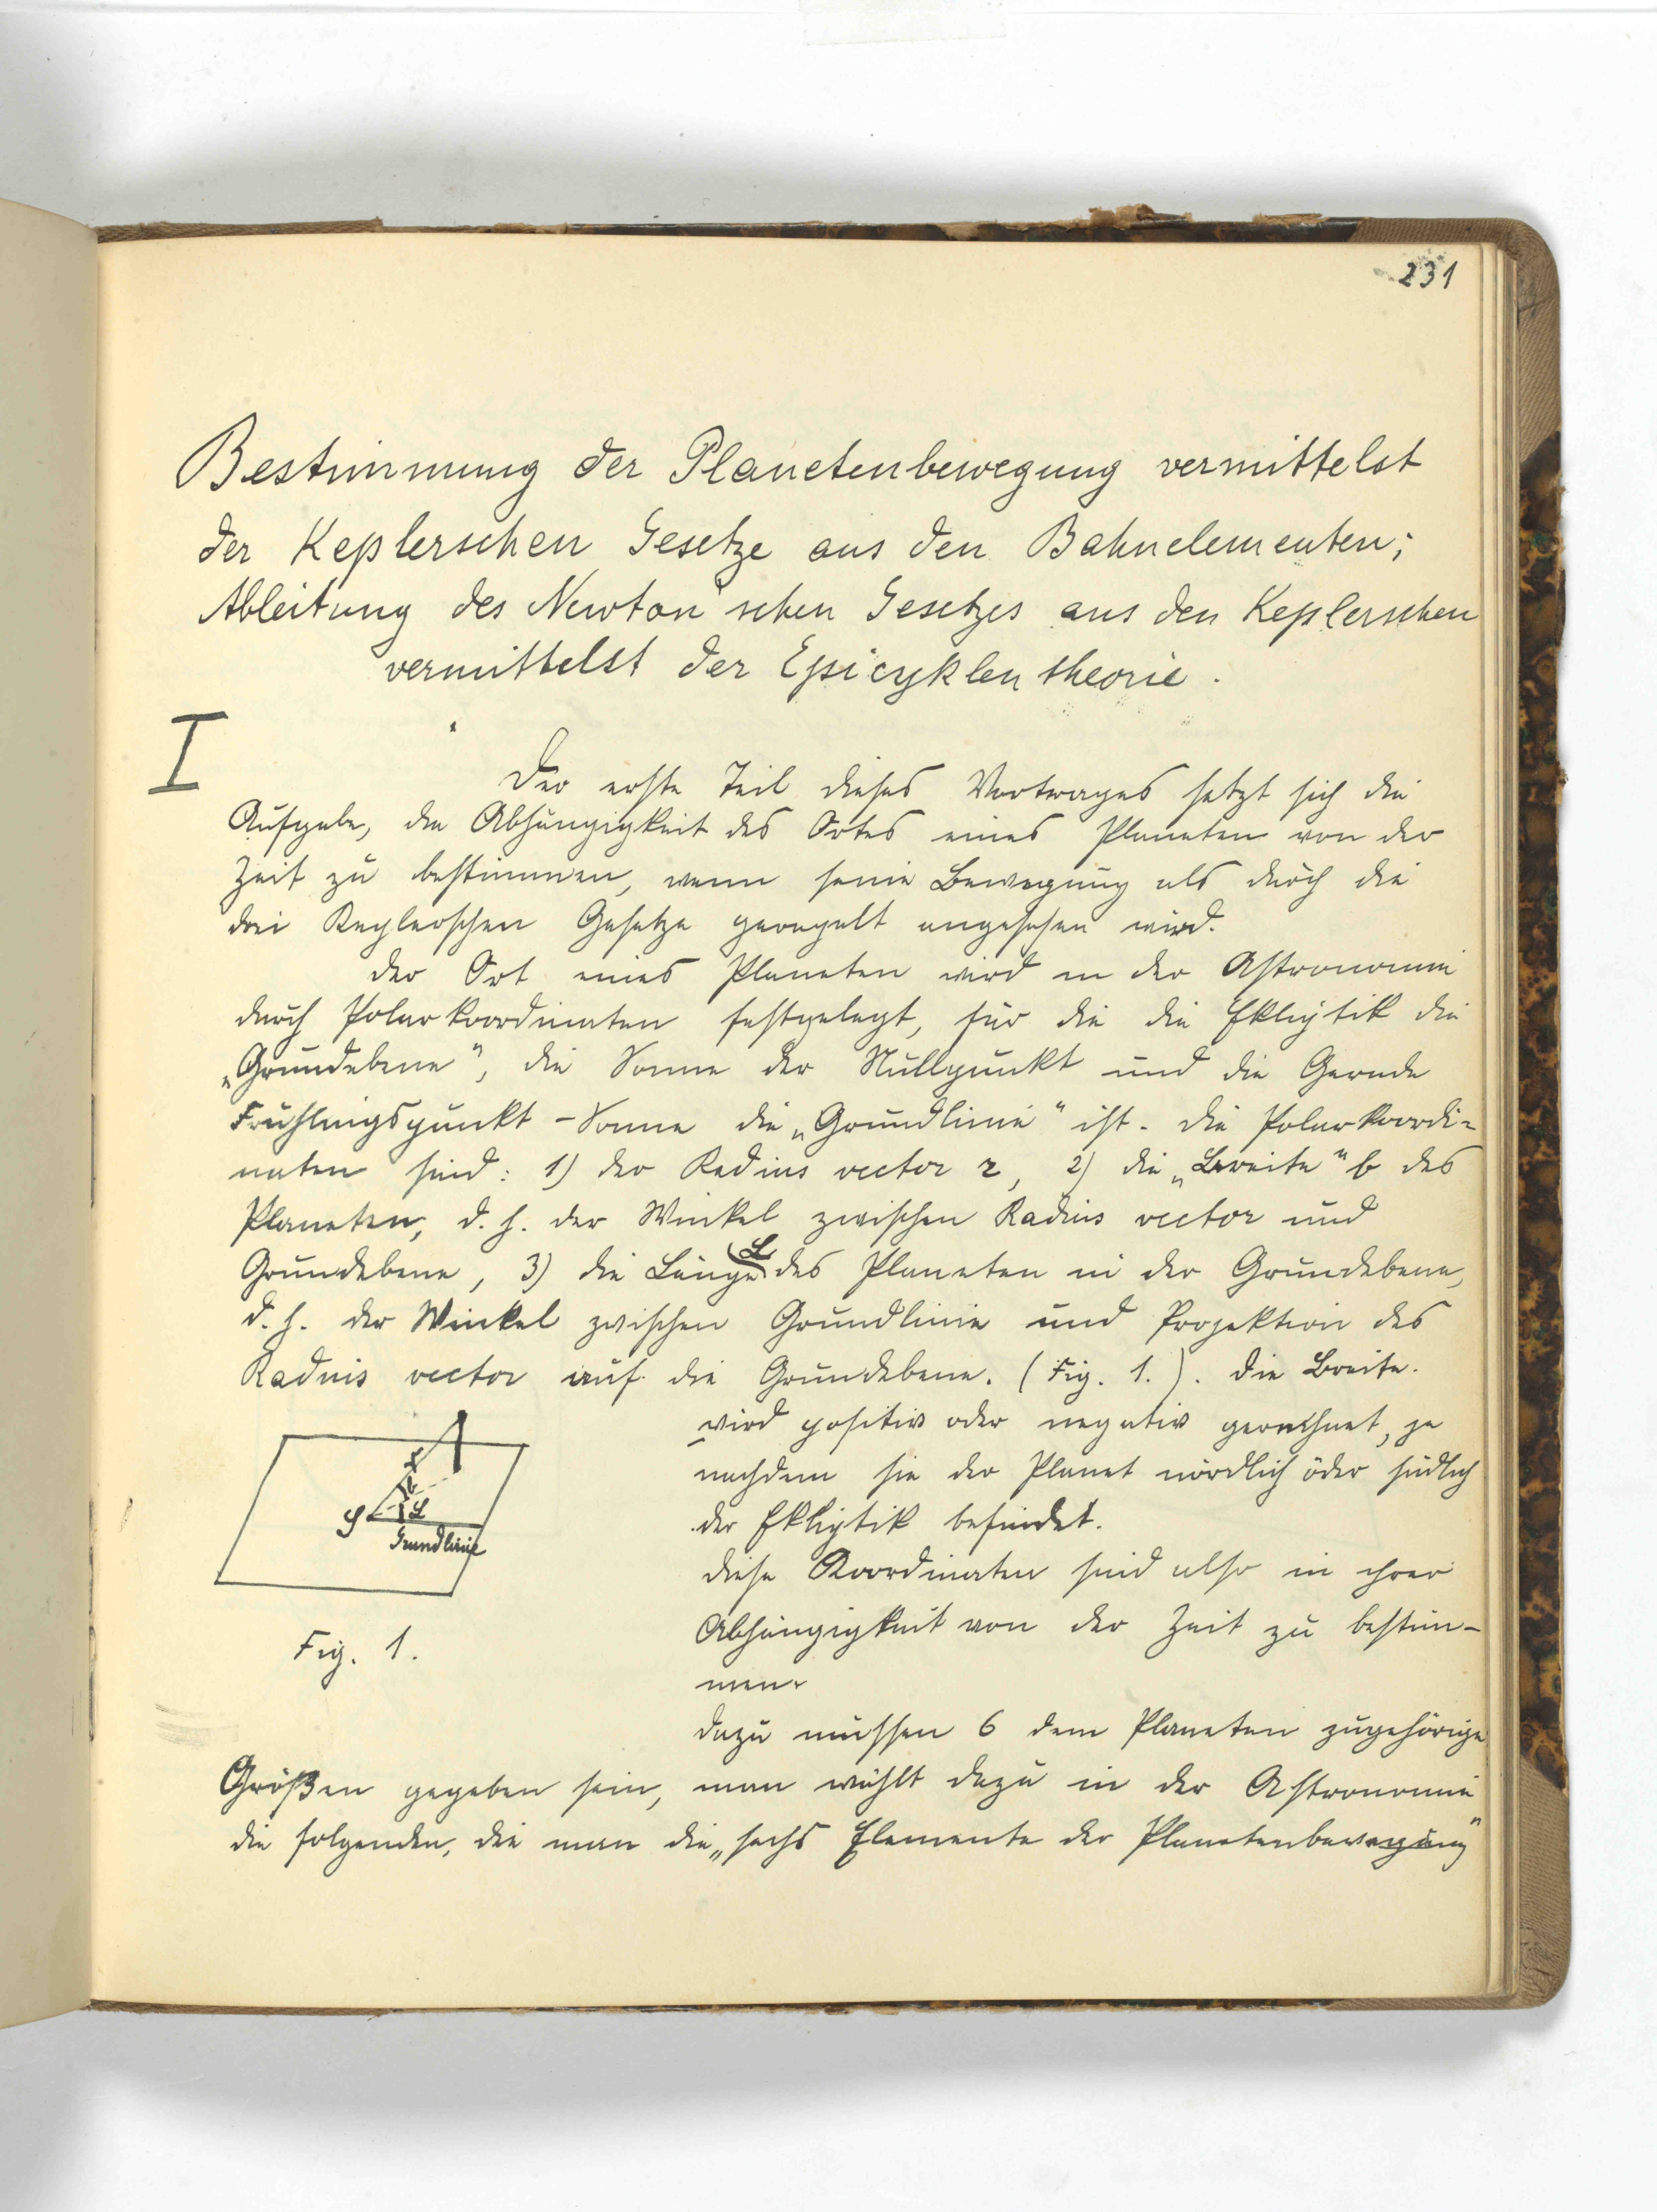 231
Bestimmung der Planetenbewegung vermittelst
der Keplerschen Gesetze aus den Bahnelementen;
Ableitung des Newton'schen Gesetzes aus den Keplerschen
vermittelst der Epicyklentheorie.
I
Der erste Teil dieses Vortrages setzt sich die
Aufgabe, die Abhängigkeit des Ortes eines Planeten von der
Zeit zu bestimmen, wenn seine Bewegung als durch die
drei Keplerschen Gesetze geregelt angesehen wird.
Der Ort eines Planeten wird in der Astronomie
durch Polarkoordinaten festgelegt, für die die Ekliptik die
„Grundebene", die Sonne der Nullpunkt und die Gerade
Frühlingspunkt - Sonne die „Grundlinie" ist. Die Polarkoordi-
naten sind: 1) der Radius vector r, 2) die „Breite" b des
Planeten, d. h. der Winkel zwischen Radius vector und
Grundebene, 3) die Länge L des Planeten in der Grundebene,
d. h. der Winkel zwischen Grundlinie und Projektion des
Radius vector auf die Grundebene. (Fig. 1.). Die Breite
wird positiv oder negativ gerechnet, je
nachdem sie der Planet nördlich oder südlich
der Ekliptik befindet.
Diese Koordinaten sind also in ihrer
Abhängigkeit von der Zeit zu bestim-
men.
Dazu müssen 6 dem Planeten zugehörige
Größen gegeben sein, man wählt dazu in der Astronomie
die folgenden, die man die „sechs Elemente der Planetenbewegung"
r
b
L
S
Grundlinie
Fig. 1.